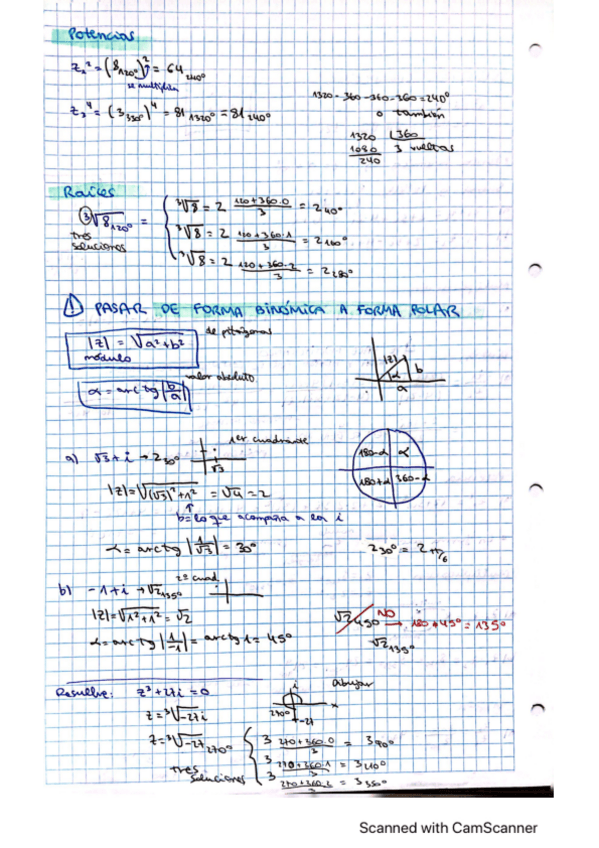 Potencias
z₁² = (8₁₂₀º)² = 64₂₄₀º
se multiplica
z₂⁴ = (3₃₃₀º)⁴ = 81₁₃₂₀º = 81₂₄₀º
1320 - 360 - 360 - 360 = 240º
o también
1320 |360
1080 3 vueltas
240
Raíces
³√8₁₂₀º =
tres
soluciones
³√8 = 2 (120+360·0)/3 = 2₄₀º
³√8 = 2 (120+360·1)/3 = 2₁₆₀º
³√8 = 2 (120+360·2)/3 = 2₂₈₀º
① PASAR DE FORMA BINÓMICA A FORMA POLAR
|z| = √a²+b²
módulo
de pitágoras
α = arctg |b/a|
valor absoluto
|z| b
α
a
a) √3 + i → 2₃₀º
1er cuadrante
√3
180-α α
180+α 360-α
|z| = √(√3)²+1² = √4 = 2
b = lo que acompaña a la i
α = arctg |1/√3| = 30º
2₃₀º = 2π/₆
b) -1 + i → √2₁₃₅º
2º cuad
|z| = √1²+1² = √2
α = arctg |1/-1| = arctg 1 = 45º
√2₄₅º NO → 180 + 45º = 135º
√2₁₃₅º
Resuelve: z³ + 27i = 0
z = ³√-27i
z = ³√-27₂₇₀º
tres
soluciones
dibujar
i
x
270º
-27
3 (270+360·0)/3 = 3₉₀º
3 (270+360·1)/3 = 3₂₁₀º
3 (270+360·2)/3 = 3₃₃₀º
Scanned with CamScanner